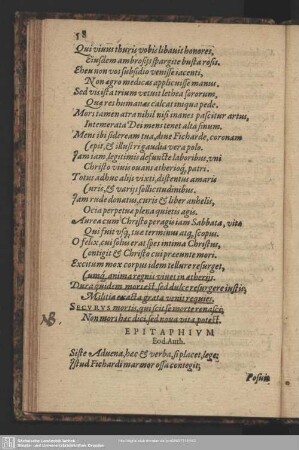 58
Qui viuus thuris vobis libauit honores,
Eiusdem ambrosijs spargite busta rosis.
Eheu non vas subsidio venisse iacenti,
Non agro medicas applicuisse manus.
Sed viuista trium vetuit lethea sororum,
Qua res humanas calcat iniqua pede.
Mors tamen atra nihil nisi inanes pascitur artus,
Intemerata Dei mens tenet alta sinum.
Mens ibi sideream tua, diue Ficharde, coronam
Cepit, & illustri gaudia vera polo.
Iam iam, legitimis defuncte laboribus, vni
Christo viuis ouans atherioq, patri.
Totus adhuc alijs vixti, distentus amaris
Curis, & varijs sollicitudinibus.
Iam rude donatus, curis & liber anhelis,
Ocia perpetua plena quietis agis.
Aurea cum Christo peragis iam Sabbata, vita
Qui fuit vsq, tue terminus atq, scopus.
O felix, cui solus erat spes intima Christus,
Contigit & Christo cui praeeunte mori.
Excitum mox corpus idem tellure resurget,
Cumq, anima regnis viuet in atherijs.
Dura quidem mors est, sed dulce resurgere iustis,
Militia exacta grata venit requies.
SECVRVS mortis, qui scit se morte renasci,
Non mors hec dici, sed noua vita potest.
NB.
EPITAPHIVM
Eod. Auth.
Siste Aduena, hec & verba, si placet, lege;
Istud Fichardi marmor ossa contegit;
Posuit